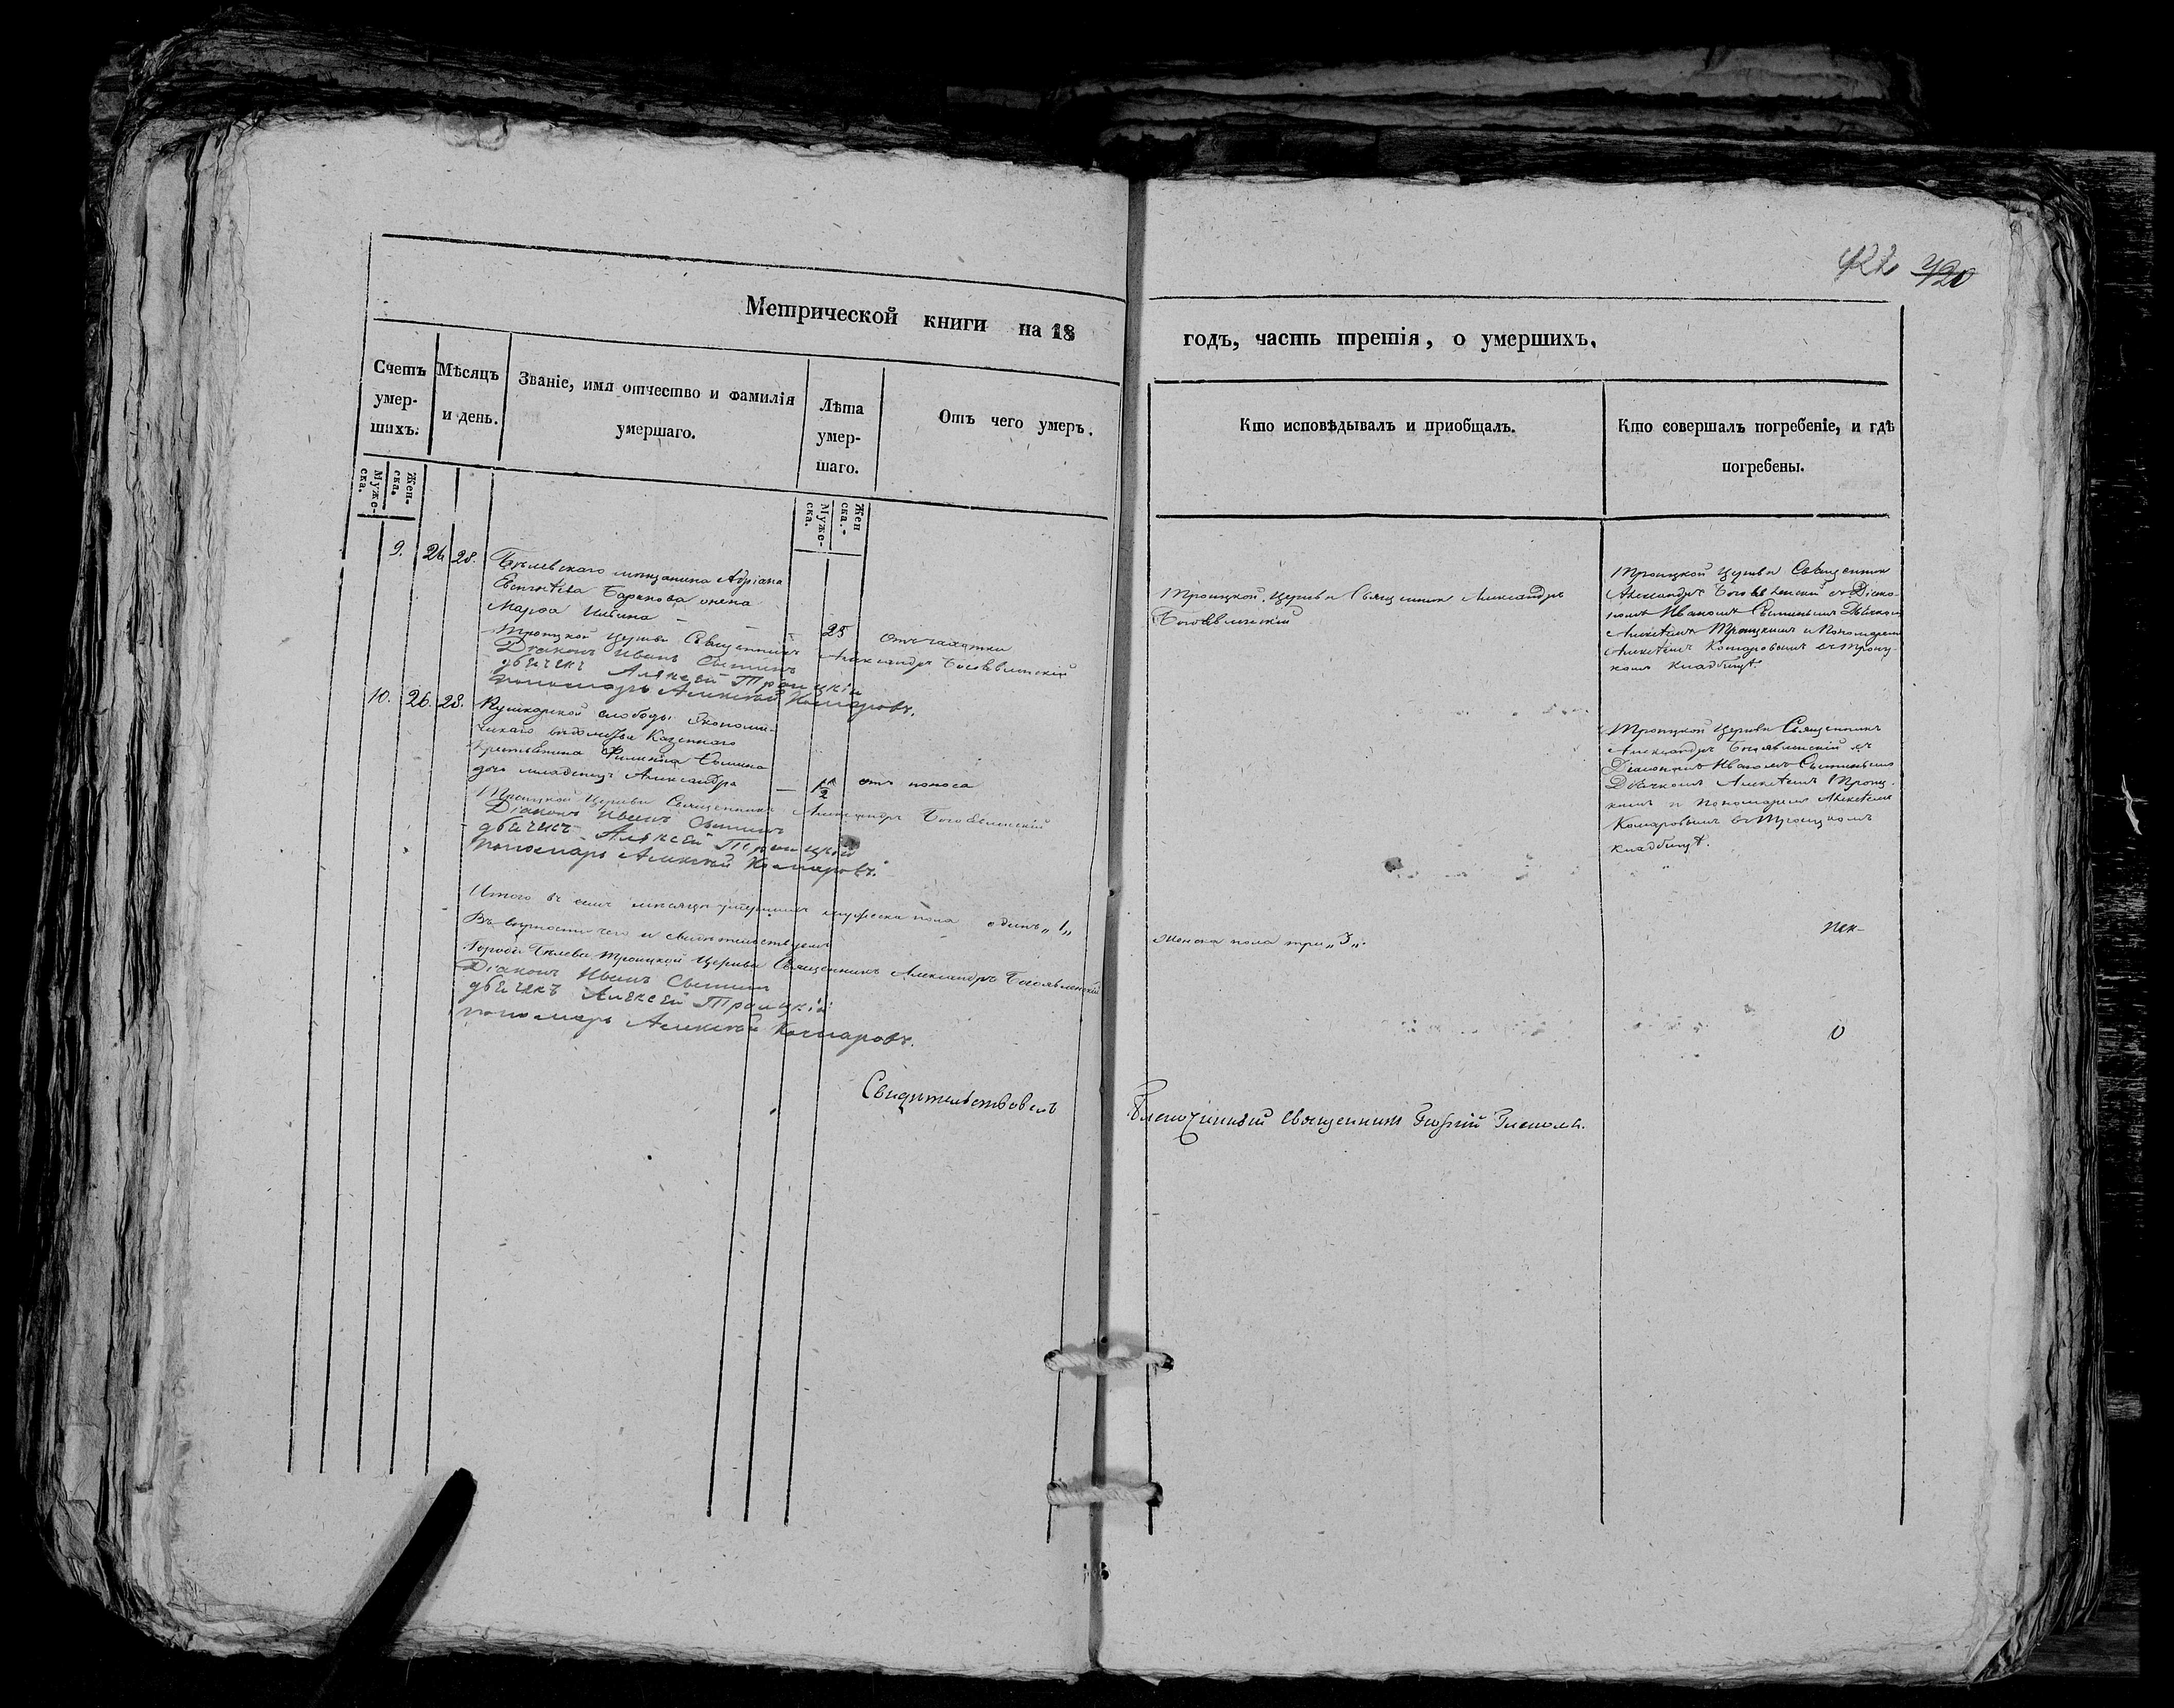 422 420
Метрической книги на 18
годъ, часть третія, о умершихъ.
Счетъ умер-шихъ.
Мѣсяцъ и день.
Званіе, имя отчество и фамилія умершаго.
Лѣта умер-шаго.
Отъ чего умеръ.
Кто исповѣдывалъ и пріобщалъ.
Кто совершалъ погребеніе, и гдѣ погребены.
Муже-ска.
Жен-ска.
Муже-ска.
Жен ска.
9. 26 28. Бѣлевскаго мѣщанина Адріана
жена
Марѳа
25
отъ чахотки
Троицкой Церкви Священникъ Александръ Богоявленскій
Діаконъ Иванъ
дьячекъ Алексей Троицкій
пономарь Алексѣй Комаровъ.
Троицкой Церкви Священникъ Александръ
Богоявленскій
Троицкой Церкви Священникъ
Александръ Богоявленскій съ Діако-
номъ Иваномъ Дьячкомъ
Алексѣемъ Троицкимъ и Пономаремъ
Алексѣемъ Комаровымъ въ Троиц-
комъ кладбищѣ.
10. 26. 28. Пушкарской слободы Экономи-
ческаго вѣдомства Казеннаго
крестьянина Филиппа
дочь младенецъ Александра
— 1/2 отъ поноса
Троицкой Церкви Священникъ Александръ Богоявленскій
Діаконъ Иванъ
дьячекъ Алексей Троицкій
пономарь Алексѣй Комаровъ.
Троицкой Церкви Священникъ
Александръ Богоявленскій съ
Діакономъ Иваномъ
Дьячкомъ Алексѣемъ Троиц-
кимъ и Пономаремъ Алексѣемъ
Комаровымъ въ Троицкомъ
кладбищѣ.
Итого въ семъ мѣсяцѣ умершихъ мужеска пола одинъ „1„
женска пола три „3„.
Въ вѣрности чего и свидѣтельствуемъ
Города Бѣлева Троицкой Церкви Священникъ Александръ Богоявленскій
Діаконъ Иванъ
дьячекъ Алексей Троицкій
пономарь Алексѣй Комаровъ.
Свидѣтельствовалъ
Благочинный Священникъ Георгій